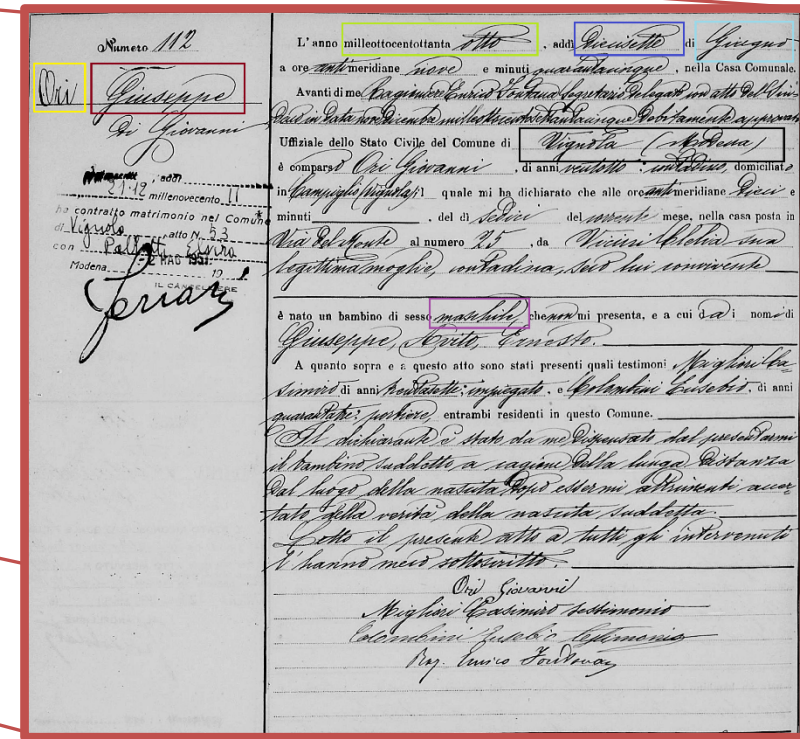 Numero 112
Ori Giuseppe
di Giovanni
addì
21·12 millenovecento 11
ha contratto matrimonio nel Comune
di Vignola atto N. 53
con Elvira
Modena 2 MAG 1951 19
IL CANCELLIERE
L'anno milleottocentottanta otto, addì diecisette di Giugno
a ore antimeridiane nove e minuti quarantacinque, nella Casa Comunale.
Avanti di me Ragioniere Enrico Segretario delegato con atto del Sin-
daco in data nove Dicembre debitamente approvato
Uffiziale dello Stato Civile del Comune di Vignola (Modena)
è comparso Ori Giovanni, di anni ventotto, contadino, domiciliato
in Campiglio (Vignola) il quale mi ha dichiarato che alle ore antimeridiane dieci e
minuti , del dì sedici del corrente mese, nella casa posta in
Via del Monte al numero 25, da Vicini Clelia sua
legittima moglie, contadina, seco lui convivente
è nato un bambino di sesso maschile che non mi presenta, e a cui dà i nomi di
Giuseppe, Avito, Ernesto.
A quanto sopra e a questo atto sono stati presenti quali testimoni Migliori Ca-
simiro di anni trentasette, impiegato, e Eusebio, di anni
quarantatre, portiere, entrambi residenti in questo Comune.
Il dichiarante è stato da me dispensato dal presentarmi
il bambino suddetto a cagione della lunga distanza
dal luogo della nascita dopo essermi altrimenti accer-
tato della verità della nascita suddetta.
Letto il presente atto a tutti gli intervenuti
l'hanno meco sottoscritto.
Ori Giovanni
Migliori Casimiro testimonio
Colombini Eusebio testimonio
Rag. Enrico